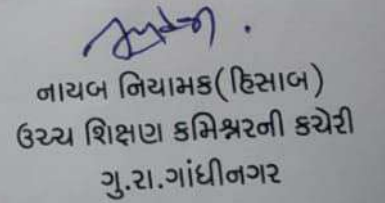 નાયબ નિયામક(હિસાબ)
ઉચ્ચ શિક્ષણ કમિશ્નરની કચેરી
ગુ.રા.ગાંધીનગર